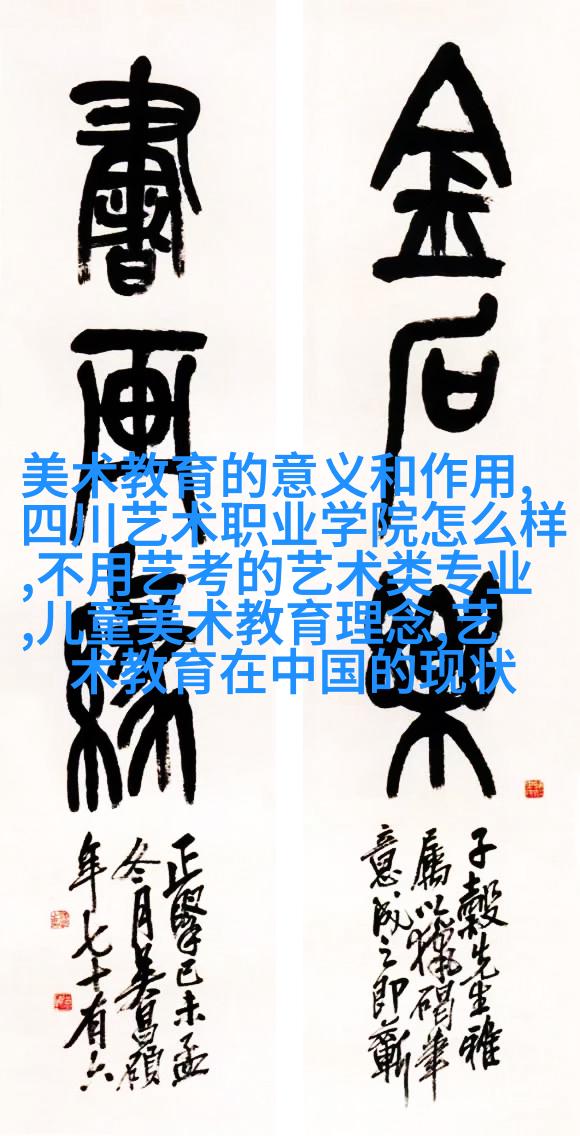 金石樂
子穀先生雅
屬以獵碣筆
意成之即蘄
書画緣
正己未孟
冬月吳昌碩
年七十有六
美术教育的意义和作用,
四川艺术职业学院怎么样
,不用艺考的艺术类专业
,儿童美术教育理念,艺
术教育在中国的现状